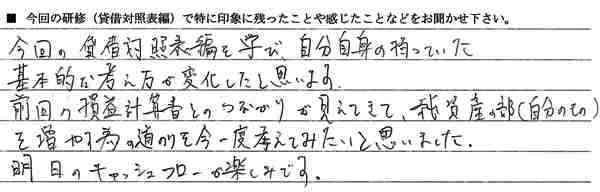 ■ 今回の研修（貸借対照表編）で特に印象に残ったことや感じたことなどをお聞かせ下さい。
今回の貸借対照表編を学び、自分自身の持っていた
基本的な考え方が変化したと思います。
前回の損益計算書とのつながりが見えてきて、純資産の部（自分のもの）
を増やす為の道のりを今一度考えてみたいと思いました。
明日のキャッシュフローが楽しみです。